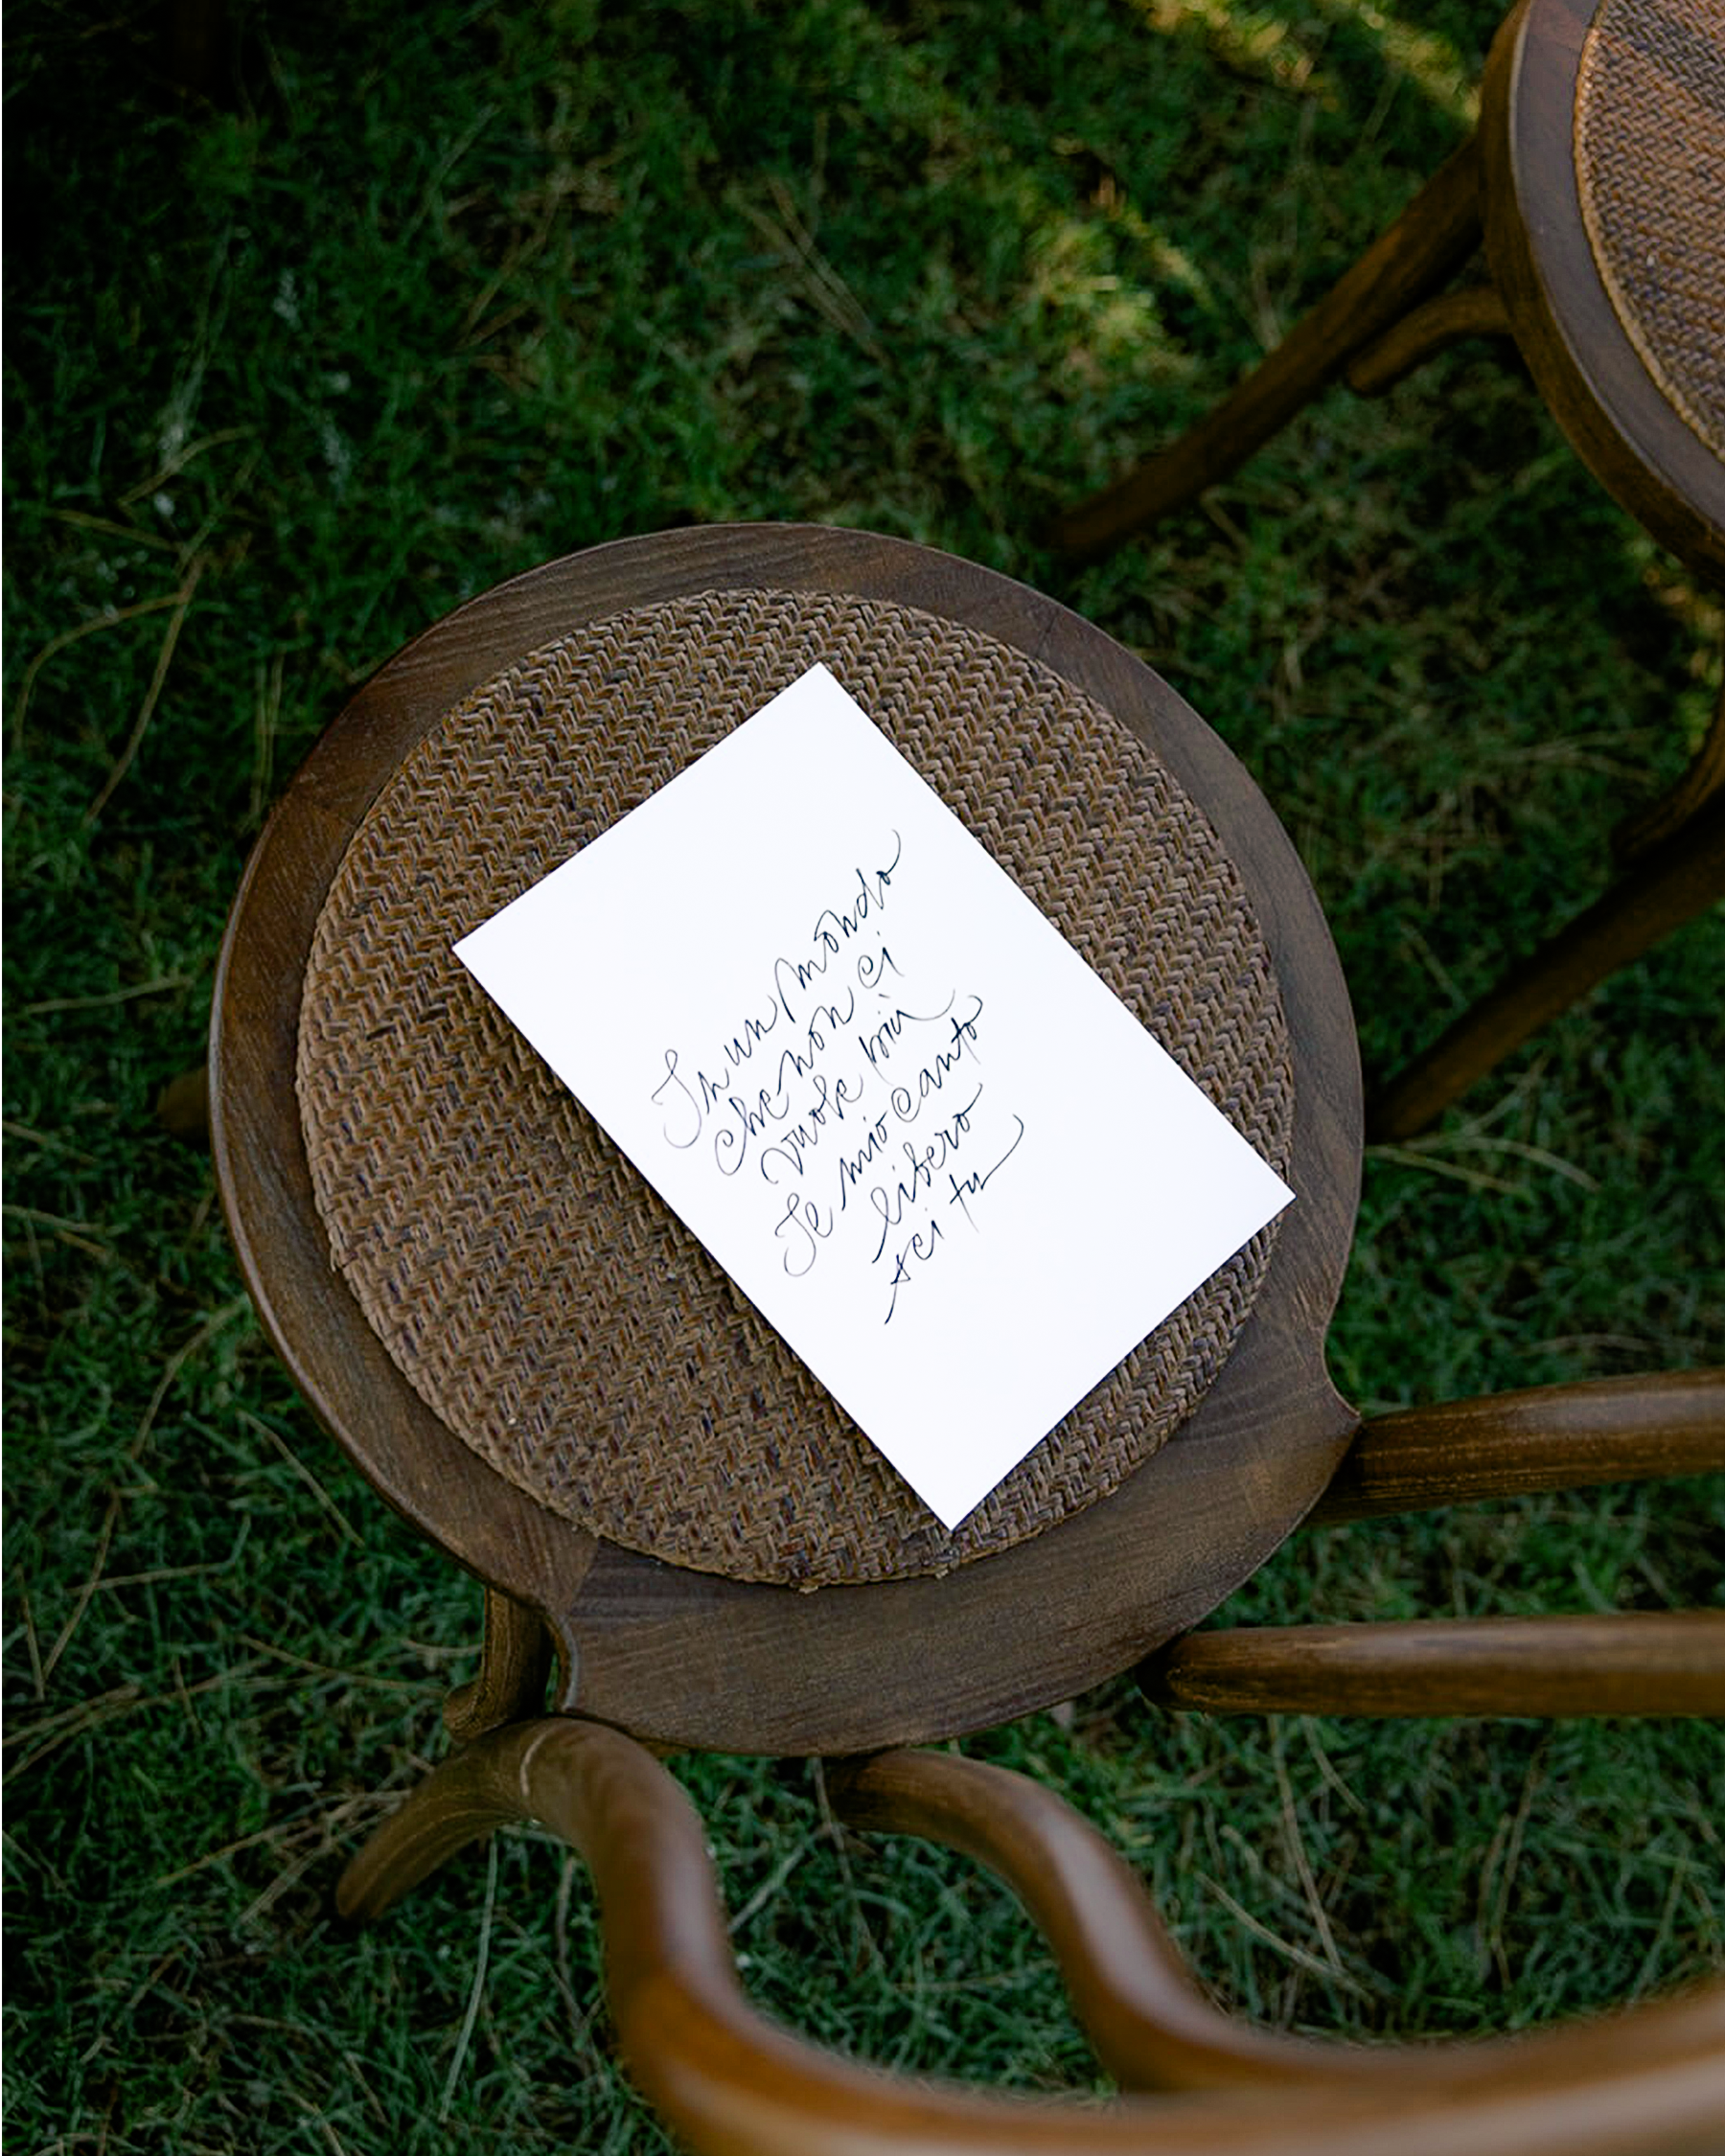 In un mondo
che non ci
vuole più
Il mio canto
libero
sei tu